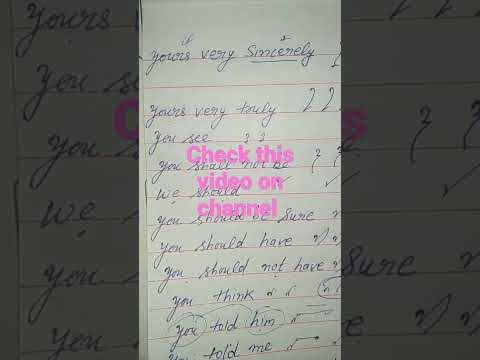 yours very Sincerely
yours very truly
you see
you shall not be
we should
you should be sure
you should have
you should not have
you think
you told him
you told me
Check this
video on
channel